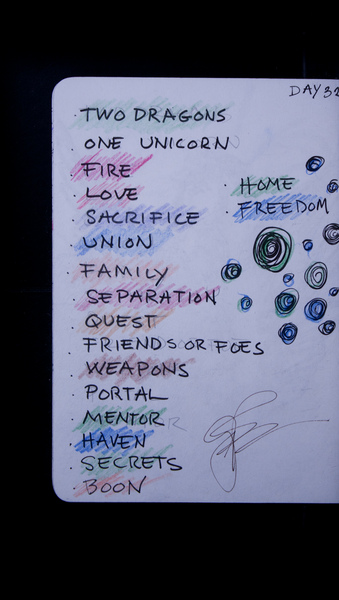 DAY 32
TWO DRAGONS
ONE UNICORN
FIRE
LOVE
SACRIFICE
UNION
FAMILY
SEPARATION
QUEST
FRIENDS OR FOES
WEAPONS
PORTAL
MENTOR
HAVEN
SECRETS
BOON
HOME
FREEDOM